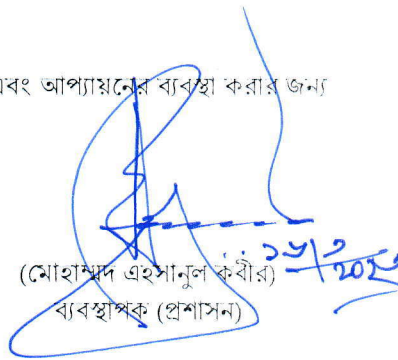 এবং আপ্যায়নের ব্যবস্থা করার জন্য
(মোহাম্মদ এহসানুল কবীর)
ব্যবস্থাপক (প্রশাসন)